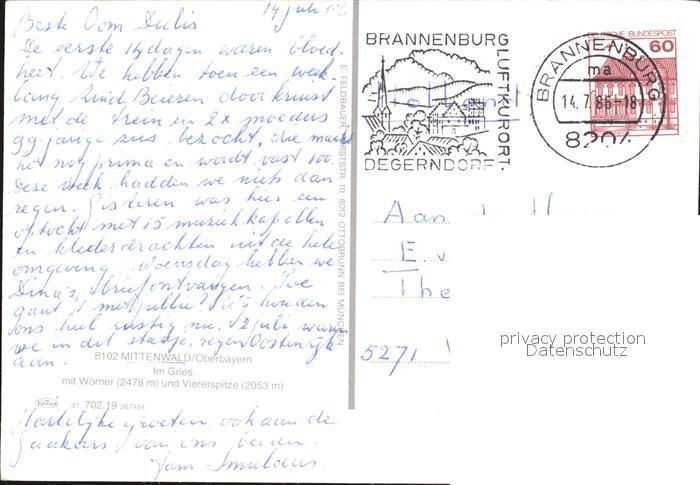 14 juli 86
Beste Oom Dulis
De eerste 14 dagen waren bloed-
heet. We hebben toen een week
lang Zuid Beieren doorkruist
met de trein en 2x moeders
99 jarige zus bezocht, die maakt
het nog prima en wordt vast 100.
Deze week hadden we niets dan
regen. Gisteren was hier een
optocht met 15 muziekkapellen
en klederdrachten uit de hele
omgeving. Woensdag hebben we
Dina's brief ontvangen. Hoe
gaat 't met jullie? Wij houden
ons heel rustig nu. 2 juli waren
we in dit stadje, tegen Oostenrijk
aan.
8102 MITTENWALD/Oberbayern
Im Gries
mit Wörner (2478 m) und Viererspitze (2053 m)
31 702.19 267454
Hartelijke groeten, ook aan de
van ons beiden.
E. FELDBAUER, 10, 8012 OTTOBRUNN BEI MÜNCHEN
BRANNENBURG
LUFTKURORT.
DEGERNDORF
BRANNENBURG
ma
14.7.86-18
8204
DEUTSCHE BUNDESPOST
60
Holland
Aan
E. v
The
5271
privacy protection
Datenschutz